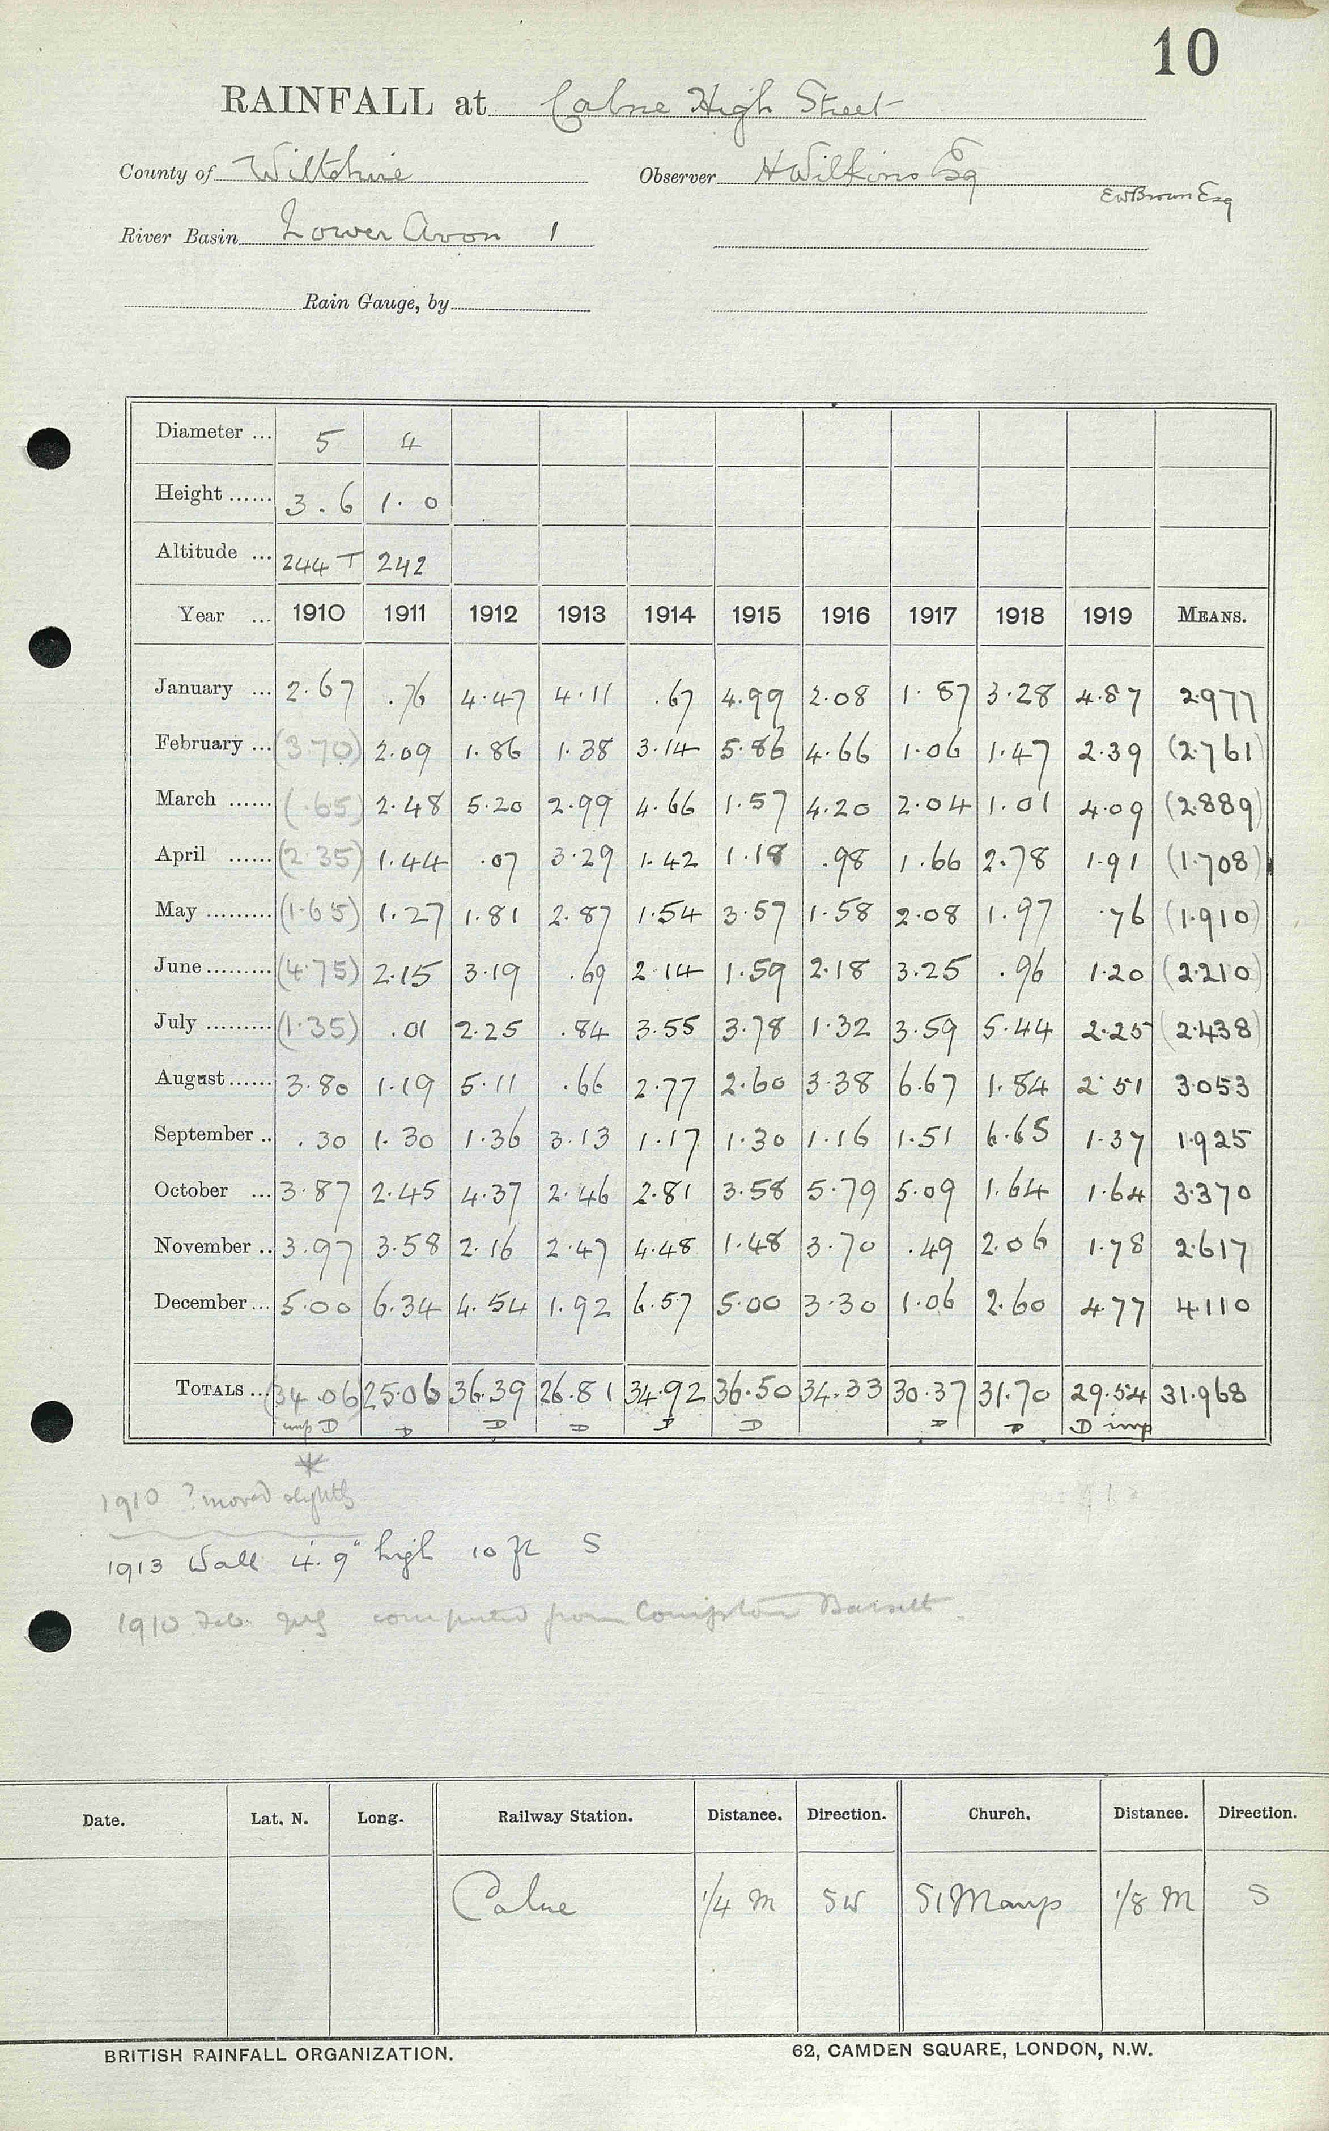 10
RAINFALL at Calne High Street
County of Wiltshire Observer H Wilkins Esq
EWBrown Esq
River Basin Lower Avon 1
Rain Gauge, by
Diameter ... 5 4
Height ...... 3.6 1.0
Altitude ... 244 T 242
Year ... 1910 1911 1912 1913 1914 1915 1916 1917 1918 1919 MEANS.
January ... 2.67 .76 4.47 4.11 .67 4.99 2.08 1.87 3.28 4.87 2.977
February ... (3.70) 2.09 1.86 1.38 3.14 5.86 4.66 1.06 1.47 2.39 (2.761)
March ...... (.65) 2.48 5.20 2.99 4.66 1.57 4.20 2.04 1.01 4.09 (2.889)
April ...... (2.35) 1.44 .07 3.29 1.42 1.18 .98 1.66 2.78 1.91 (1.708)
May ......... (1.65) 1.27 1.81 2.87 1.54 3.57 1.58 2.08 1.97 .76 (1.910)
June ......... (4.75) 2.15 3.19 .69 2.14 1.59 2.18 3.25 .96 1.20 (2.210)
July ......... (1.35) .01 2.25 .84 3.55 3.78 1.32 3.59 5.44 2.25 (2.438)
August ...... 3.80 1.19 5.11 .66 2.77 2.60 3.38 6.67 1.84 2.51 3.053
September .. .30 1.30 1.36 3.13 1.17 1.30 1.16 1.51 6.65 1.37 1.925
October ... 3.87 2.45 4.37 2.46 2.81 3.58 5.79 5.09 1.64 1.64 3.370
November .. 3.97 3.58 2.16 2.47 4.48 1.48 3.70 .49 2.06 1.78 2.617
December ... 5.00 6.34 4.54 1.92 6.57 5.00 3.30 1.06 2.60 4.77 4.110
TOTALS ... (34.06) 25.06 36.39 26.81 34.92 36.50 34.33 30.37 31.70 29.54 31.968
imp D D D D D D D D D imp
*
1910 ? moved slightly
1913 Wall 4'. 9" high 10 ft S
1910 Feb. July computed from Compton Bassett.
Date. Lat. N. Long. Railway Station. Distance. Direction. Church. Distance. Direction.
Calne 1/4 M SW St Marys 1/8 M S
BRITISH RAINFALL ORGANIZATION. 62, CAMDEN SQUARE, LONDON, N.W.